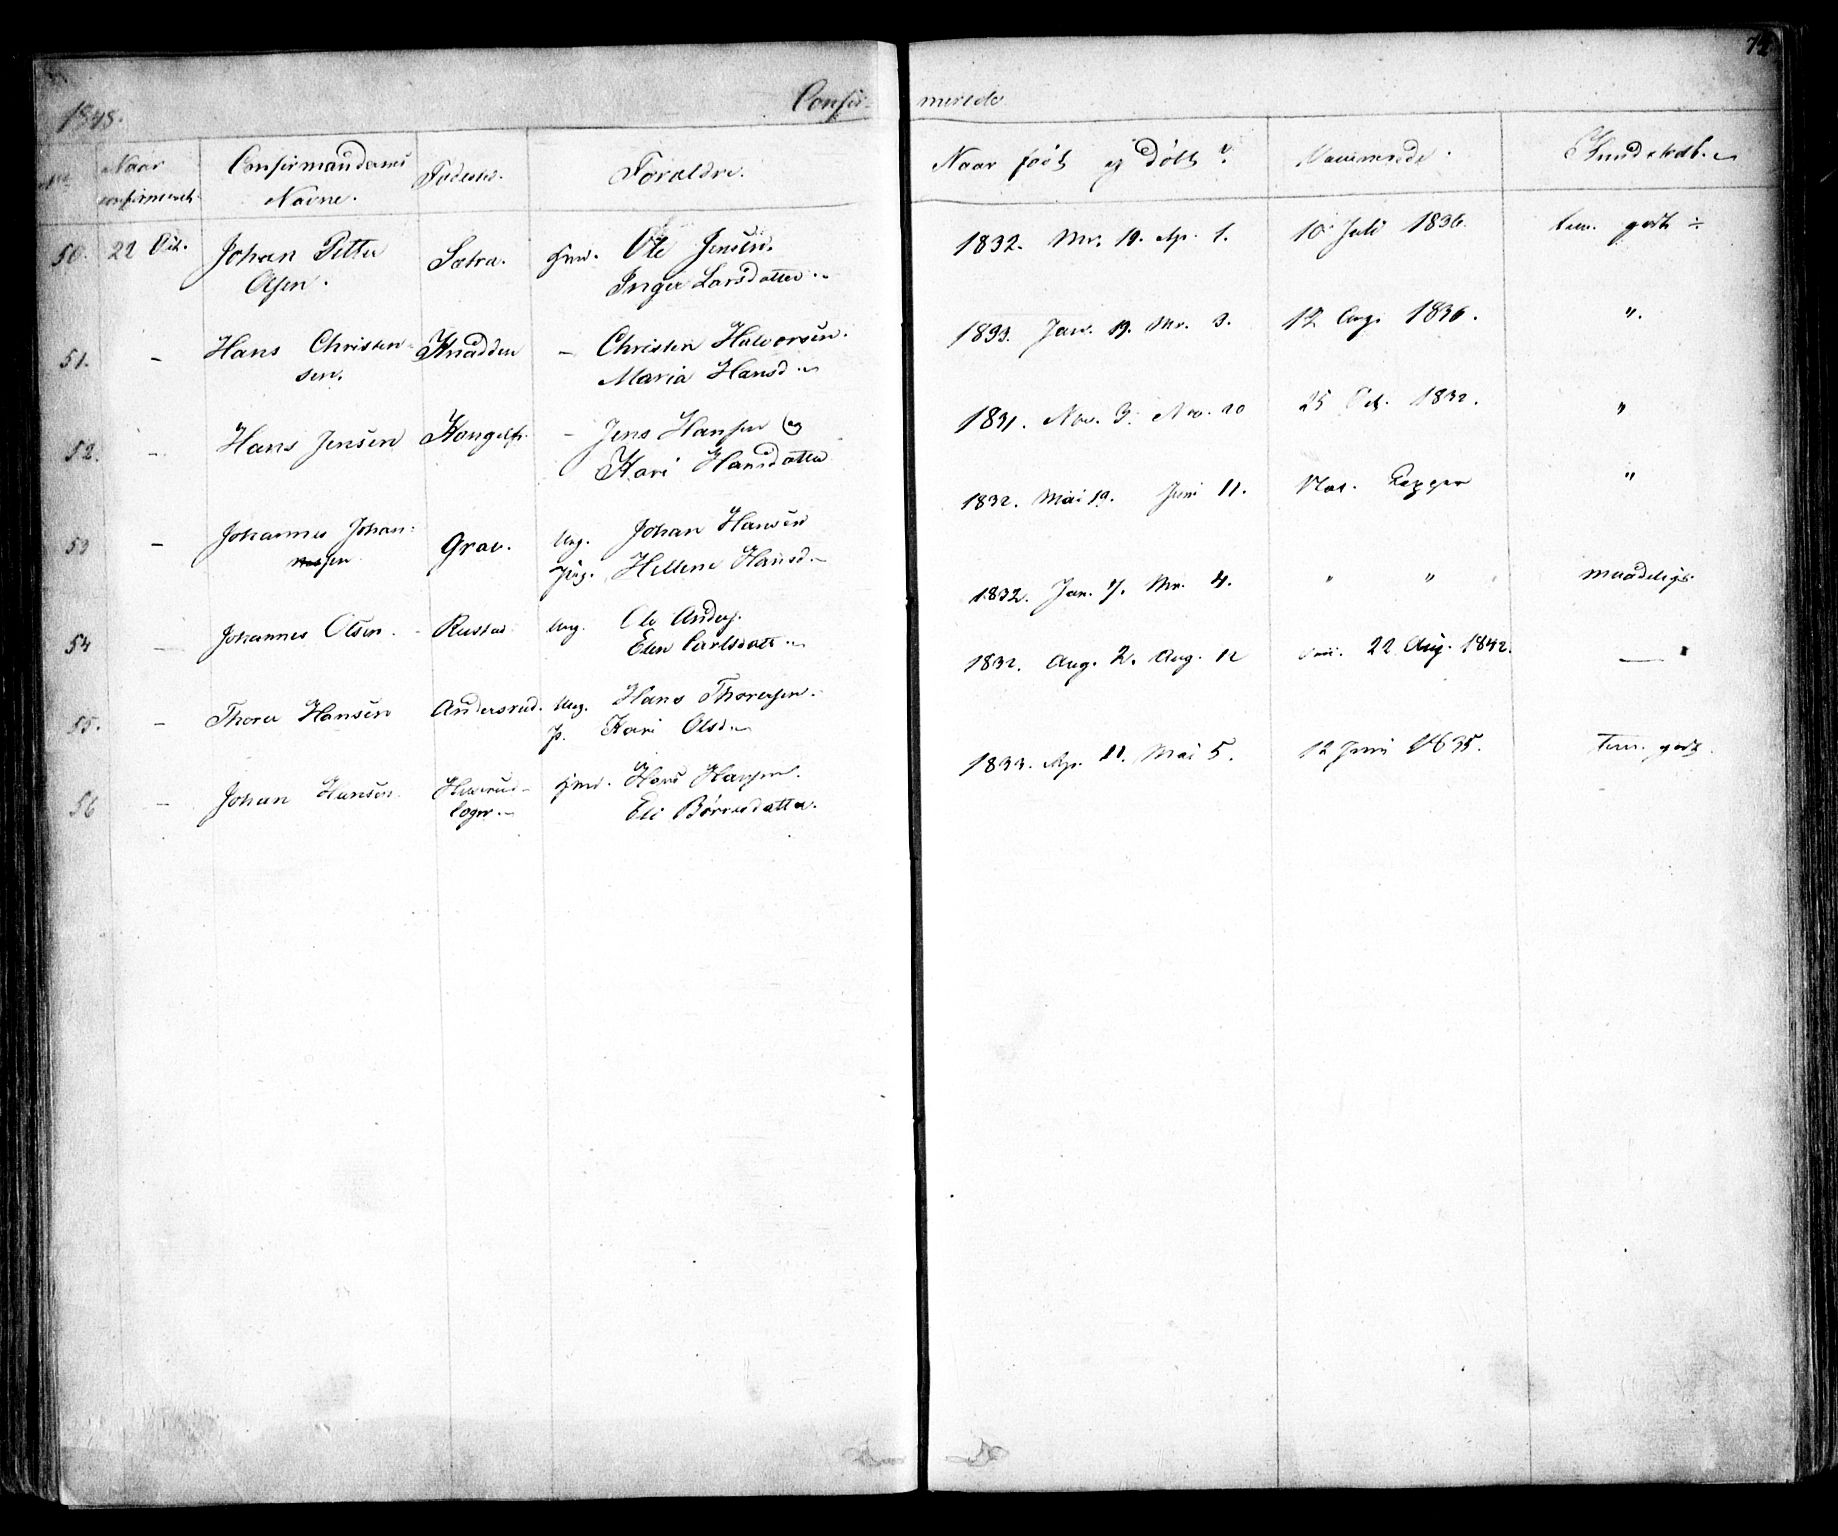 1848. Confir- merede 74
No Naar confirmeret. Confirmandernes Navne. Fødested. Forældre. Naar født og døbt? Vaccinerede. Kundskab.
50. 22 Oct. Johan Petter Sætra. Hmd. Ole Jensen. 1832. Mr. 19. Ap. 1. 10 Juli 1836. tem. godt ÷
Olsen. Inger Larsdatter.
51. – Hans Christen- Knadden – Christen Halvorsen. 1833. Jan. 9. Mr. 3. 12 Aug. 1836. "
sen. Maria Hansd.
52. – Hans Jensen Kongelf. – Jens Hansen og 1831. Nov. 3. Nov. 20 25 Oct. 1832. "
Kari Hansdatter
53 – Johannes Johan- Grav. Ung. Johan Hansen 1832. Mai 19. Juni 11. Nat. Kopper "
sen Pig. Hellene Hansd.
54 – Johannes Olsen. Rustad. Ung. Ole Anders. 1832. Jan. 7. Mr. 4. " " maadelig.
Elen Carlsdatt.
55. – Thorer Hansen Andersrud. Ung. Hans Thoresen. 1832. Aug. 2. Aug. 12 22 Aug. 1842. —
P. Kari Olsd.
56 – Johan Hansen Hmd. Hans Hansen. 1833. Ap. 11. Mai 5. 12 Juni 1835. tem. godt.
Eli Børresdatter.